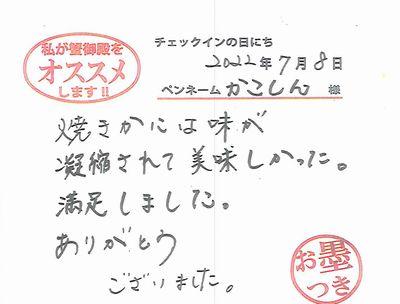 私が蟹御殿を
オススメ
します!!
チェックインの日にち
2022年7月8日
ペンネーム かこしん 様
焼きかには味が
凝縮されて美味しかった。
満足しました。
ありがとう
ございました。
お墨
つき